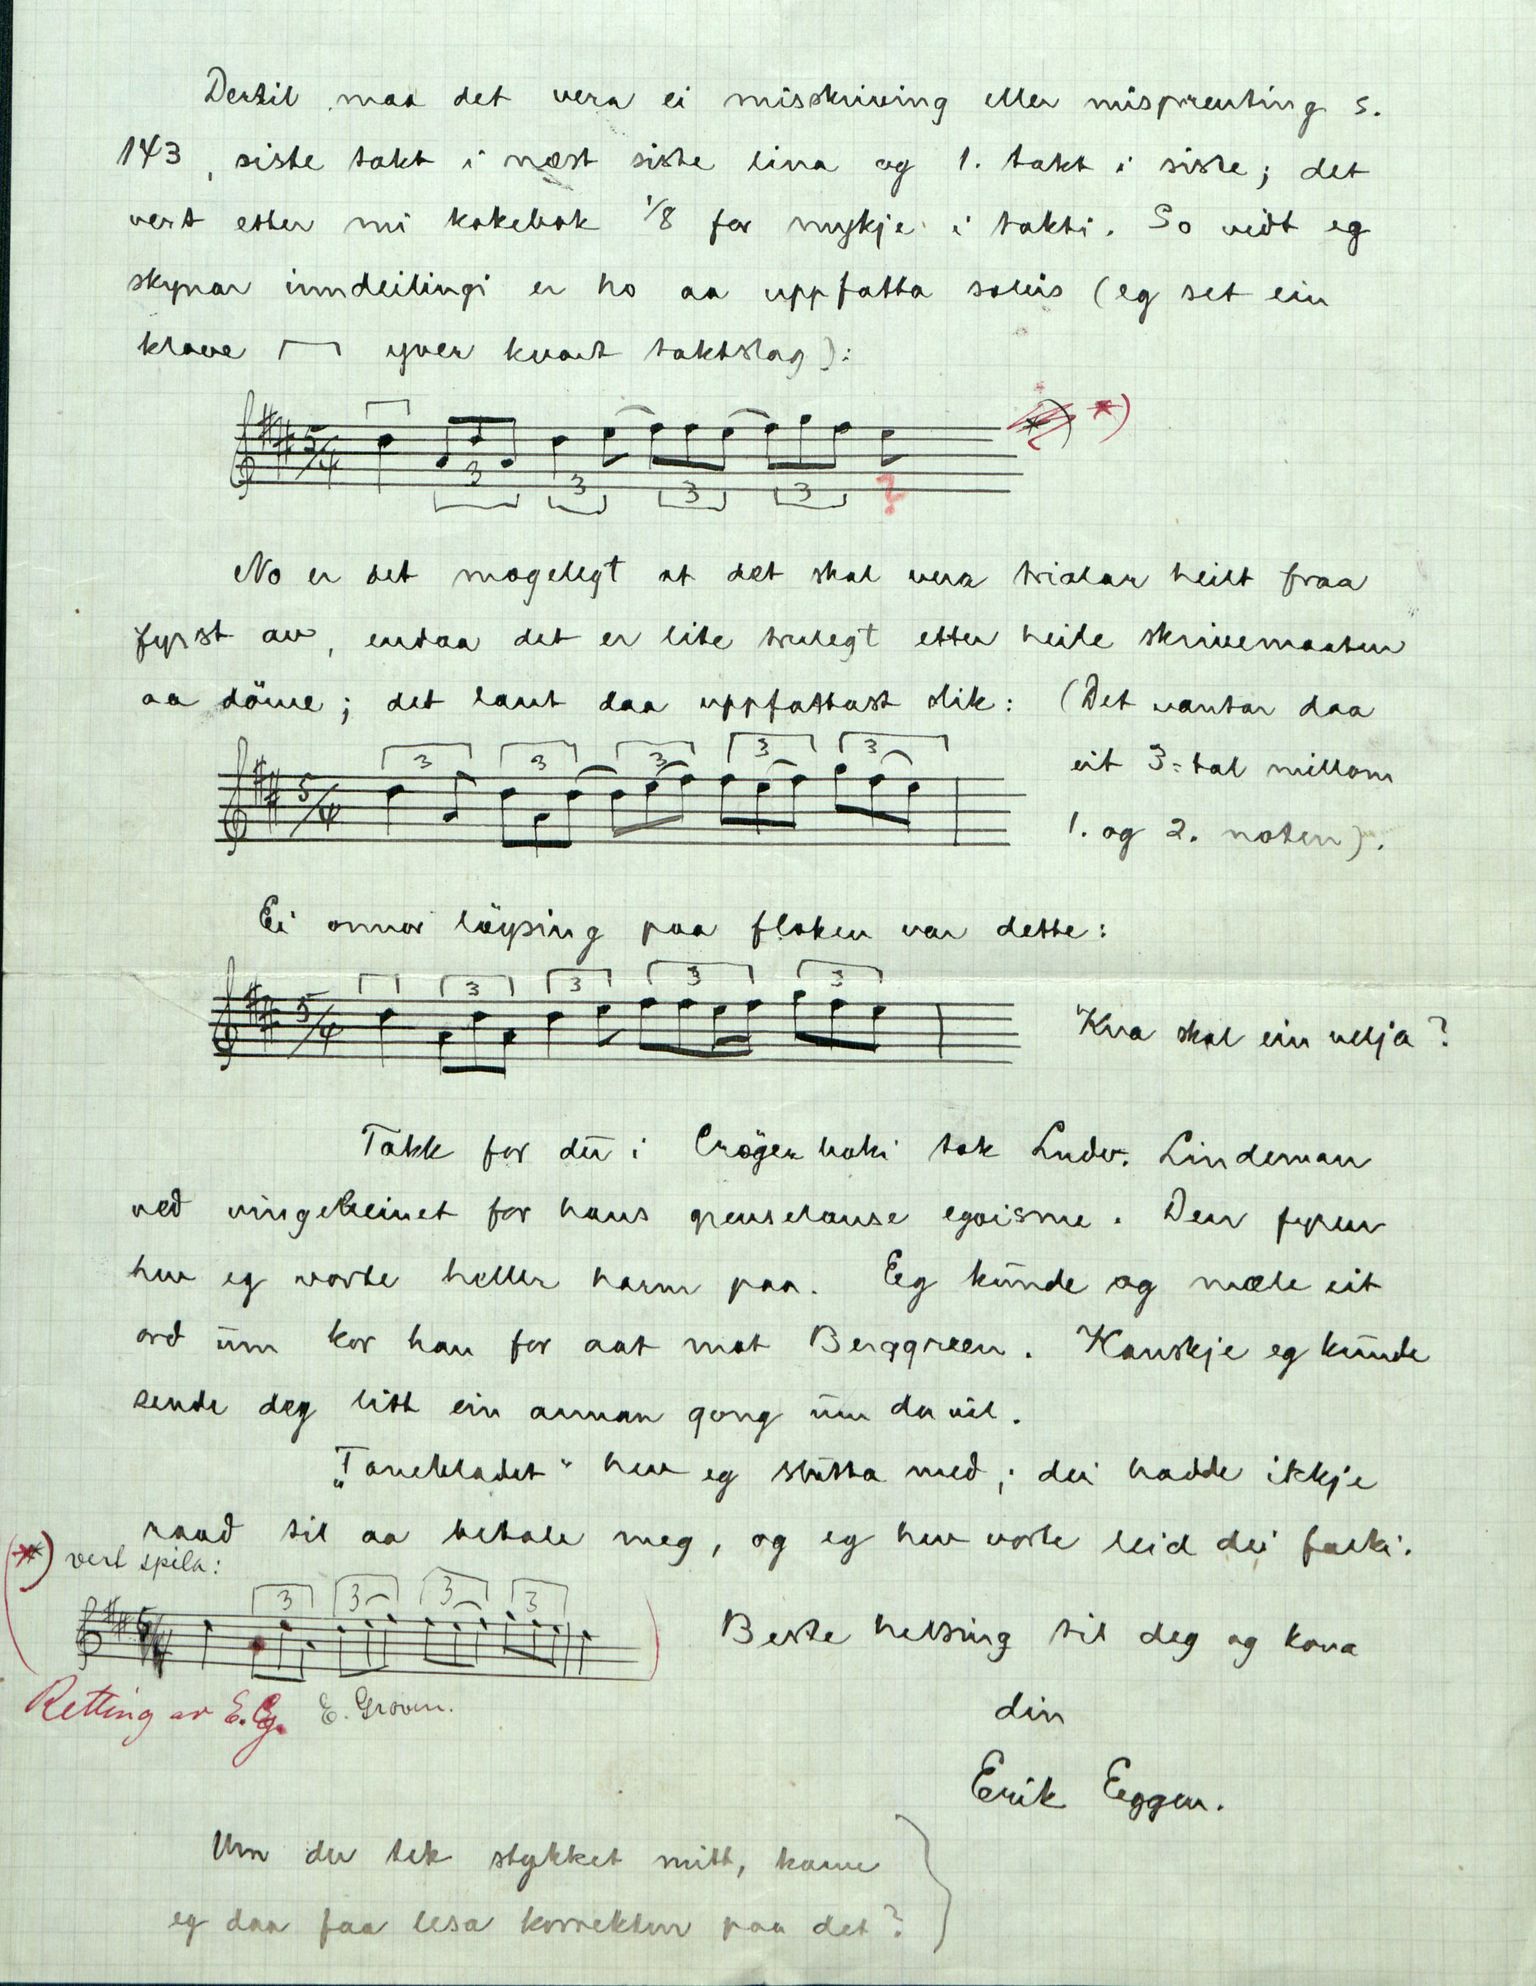 Dertil maa det vera ei misskriving eller misprenting s.
143, siste takt i næst siste lina og 1. takt i siste; det
vert etter mi kokebok 1/8 for mykje i takti. So vidt eg
skynar inndeilingi er ho aa uppfatta soleis (eg set ein
klave ┌─┐ yver kvart taktslag):
5/4 3 3 3 3 ? *) *)
No er det mogelegt at det skal vera triolar heilt fraa
fyrst av, endaa det er lite trulegt etter heile skrivemaaten
aa döme; det laut daa uppfattast slik: (Det vantar daa
eit 3-tal millom
1. og 2. noten).
5/4 3 3 3 3 3
Ei onnor löysing paa floken var dette:
5/4 3 3 3 3
Kva skal ein velja?
Takk for du i Crögerboki tok Ludv. Lindeman
ved vingebeinet for hans grenselause egoisme. Den fyren
hev eg vorte heller harm paa. Eg kunde og mæle eit
ord um kor han for aat mot Berggreen. Kanskje eg kunde
sende deg litt ein annan gong um du vil.
„Tonebladet“ hev eg slutta med; dei hadde ikkje
raad til aa betale meg, og eg hev vorte leid dei folki.
(*) vert spila:
3 3 3 3
Retting av E.G. E. Groven.
Beste helsing til deg og kona
din
Erik Eggen.
Um du tek stykket mitt, kann
eg daa faa lesa korrektur paa det?